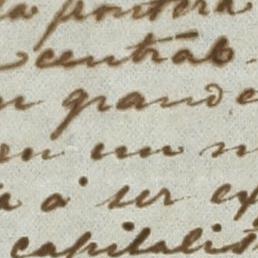 la frontera
central.
grande
en un
a ser ex
capitalist